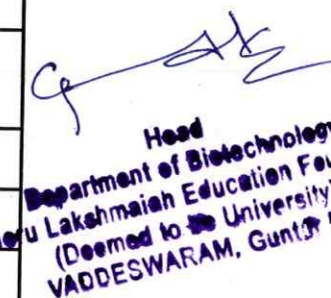 Head
Department of Biotechnology
u Lakshmaiah Education Fou
(Deemed to be University)
VADDESWARAM, Guntur